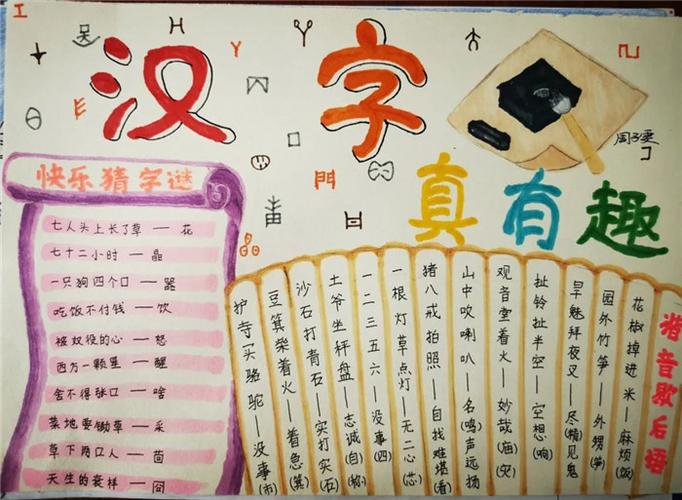 汉字
真有趣
快乐猜字谜
七人头上长了草 — 花
七十二小时 — 晶
一只狗四个口 — 器
吃饭不付钱 — 饮
被奴役的心 — 怒
西方一颗星 — 醒
舍不得张口 — 啥
菜地要锄草 — 采
草下两口人 — 茴
天生的衰样 —
谐音歇后语
花椒掉进米——麻烦(饭)
园外竹笋——外甥(笋)
旱魃拜夜叉——尽(精)见鬼
扯铃扯半空——空想(响)
观音堂着火——妙哉(庙)(灾)
山中吹喇叭——名(鸣)声远扬
猪八戒拍照——自找难堪(看)
一根灯草点灯——无二心(芯)
一二三五六——没事(四)
土爷坐秤盘——志诚(自)(称)
沙石打青石——实打实(石)
豆箕柴着火——着急(箕)
护寺一头骆驼——没事(市)